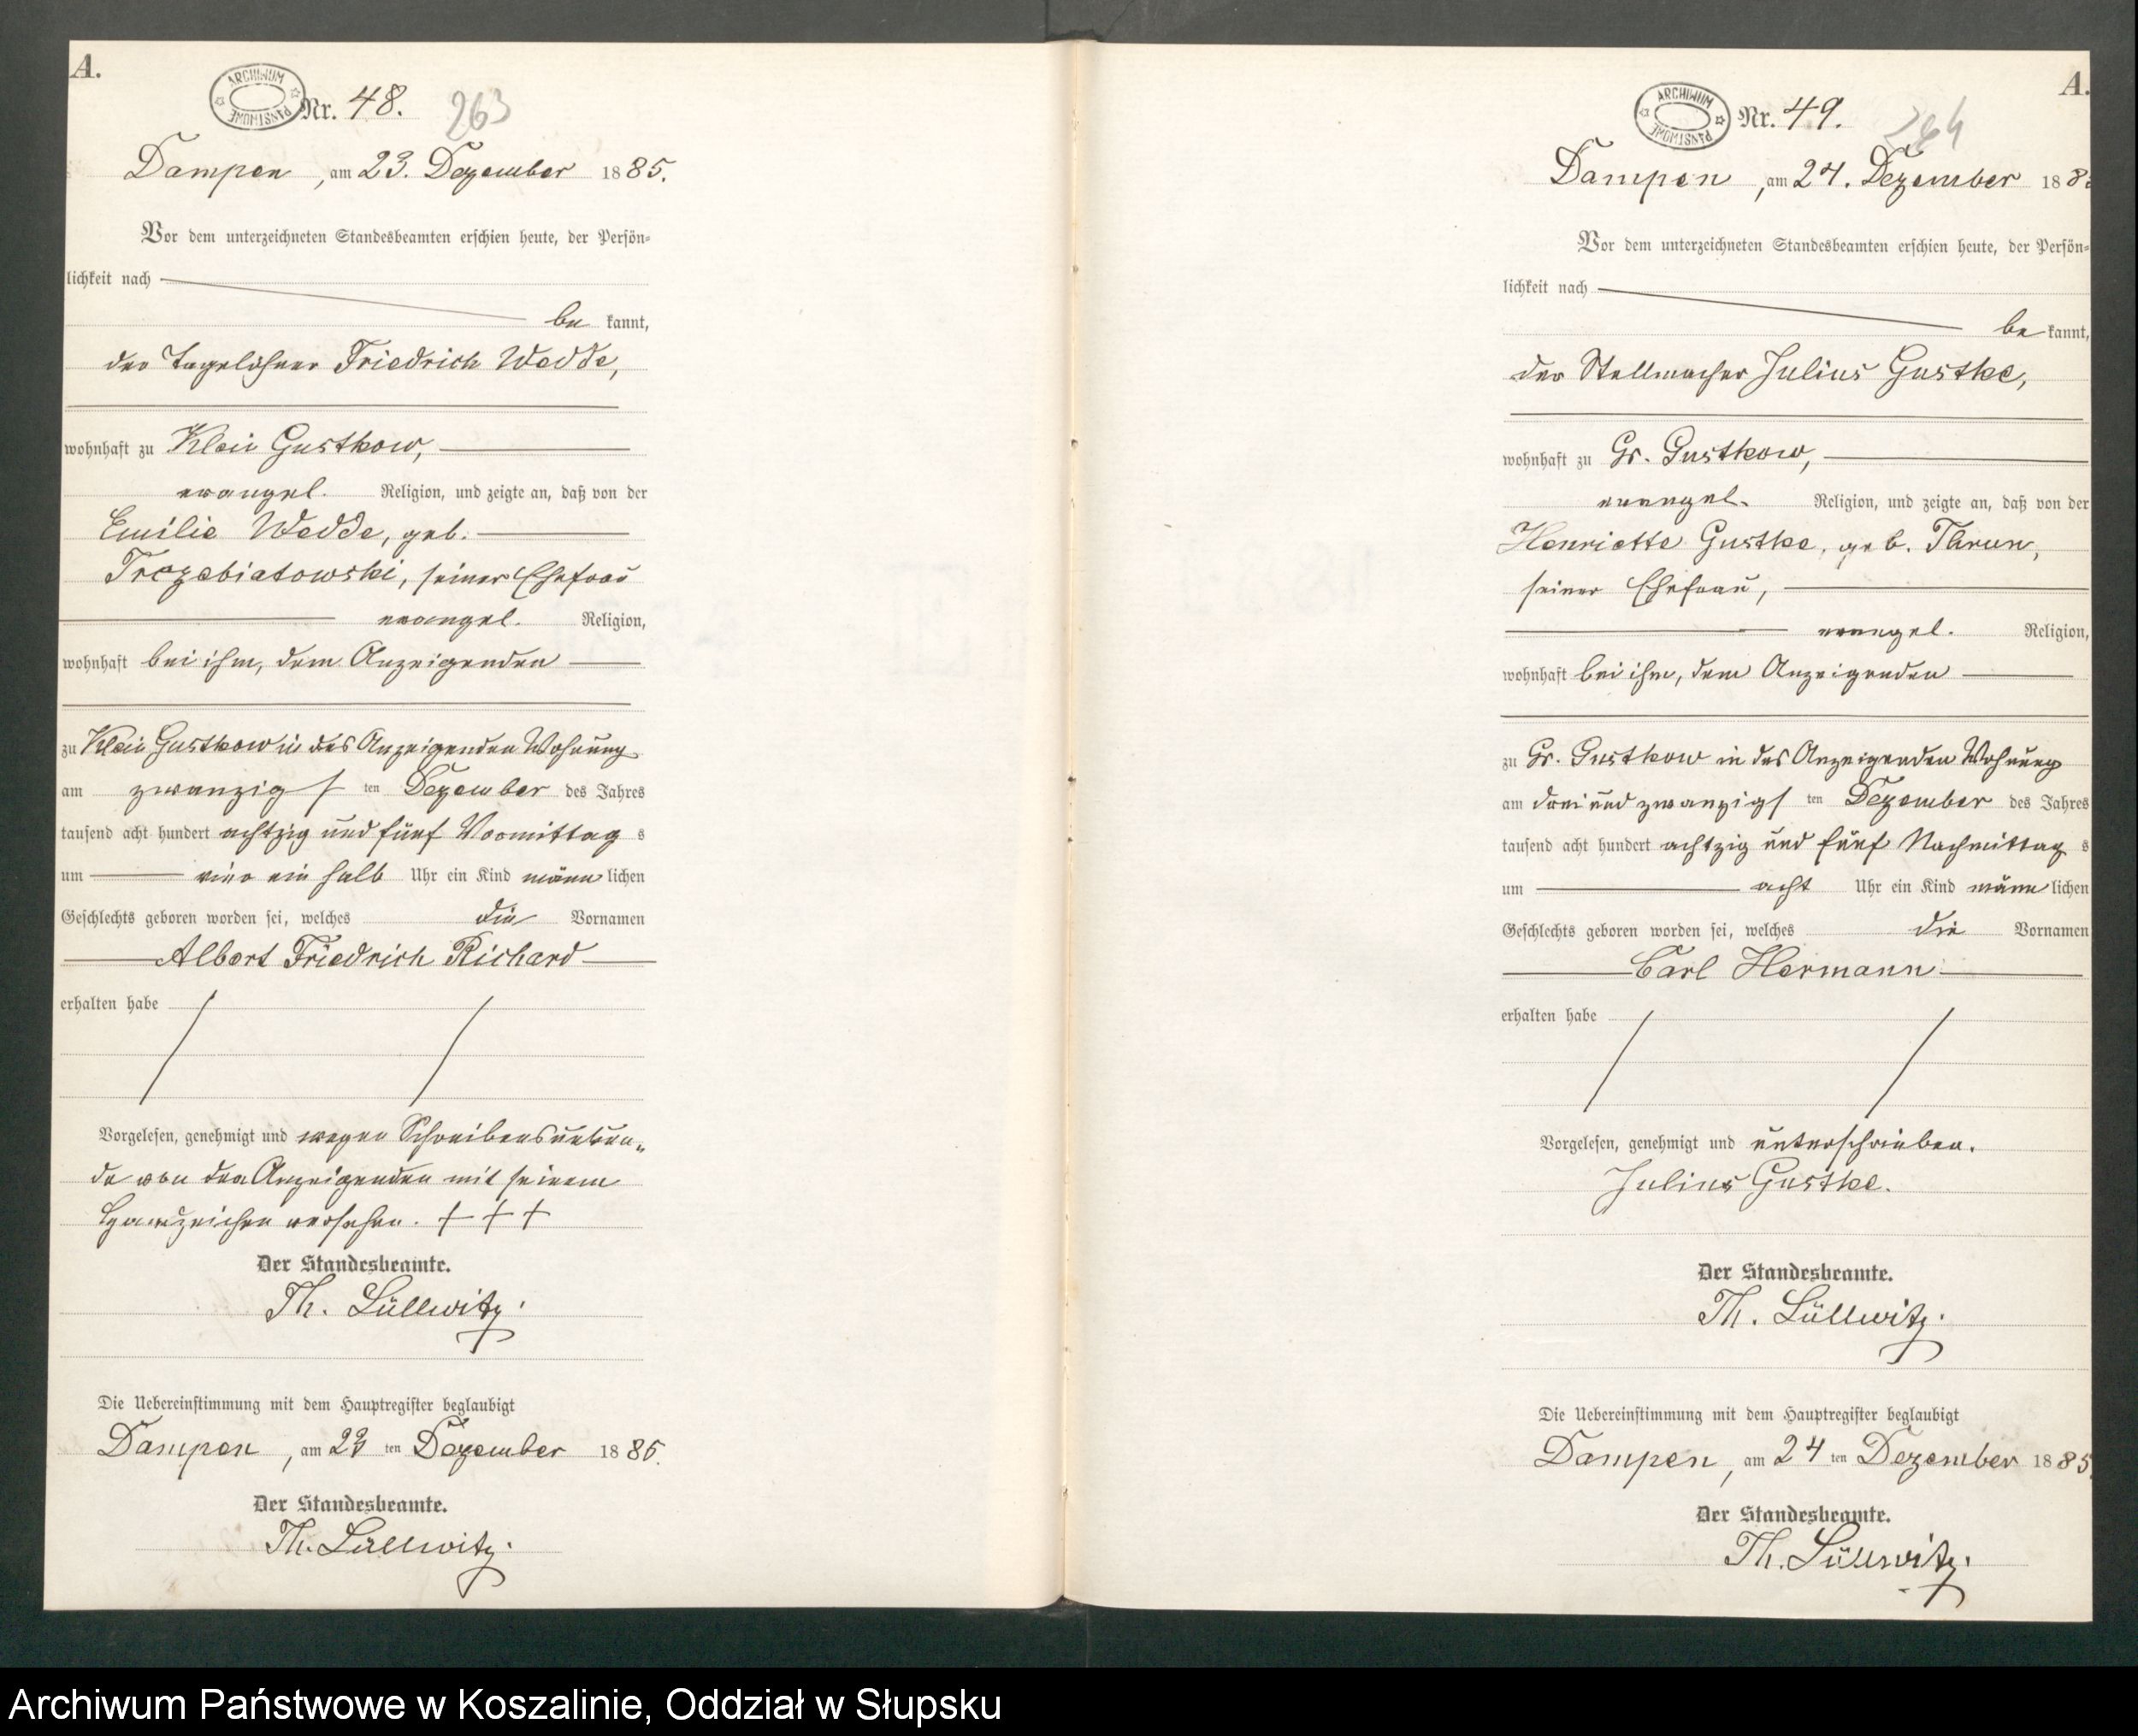 A.
ARCHIWUM PAŃSTWOWE
Nr. 48.
263
Dampen, am 23. Dezember 1885.
Vor dem unterzeichneten Standesbeamten erschien heute, der Persön-
lichkeit nach
be kannt,
der Tagelöhner Friedrich Wedde,
wohnhaft zu Klein Gustkow,
evangel. Religion, und zeigte an, daß von der
Emilie Wedde, geb.
Trczebiatowski, seiner Ehefrau
evangel. Religion,
wohnhaft bei ihm, dem Anzeigenden
zu Klein Gustkow in des Anzeigenden Wohnung
am zwanzigs ten Dezember des Jahres
tausend acht hundert achtzig und fünf Vormittag s
um vier ein halb Uhr ein Kind männ lichen
Geschlechts geboren worden sei, welches die Vornamen
Albert Friedrich Richard
erhalten habe
Vorgelesen, genehmigt und wegen Schreibensunkun-
de von den Anzeigenden mit seinem
Handzeichen versehen. + + +
Der Standesbeamte.
Th. Lüllwitz.
Die Uebereinstimmung mit dem Hauptregister beglaubigt
Dampen, am 23 ten Dezember 1885.
Der Standesbeamte.
Th. Lüllwitz.
A.
ARCHIWUM PAŃSTWOWE
Nr. 49.
264
Dampen, am 24. Dezember 188
Vor dem unterzeichneten Standesbeamten erschien heute, der Persön-
lichkeit nach
be kannt,
der Stellmacher Julius Gustke,
wohnhaft zu Gr. Gustkow,
evangel. Religion, und zeigte an, daß von der
Henriette Gustke, geb. Tarun,
seiner Ehefrau,
evangel. Religion,
wohnhaft bei ihm, dem Anzeigenden
zu Gr. Gustkow in des Anzeigenden Wohnung
am dreiundzwanzigs ten Dezember des Jahres
tausend acht hundert achtzig und fünf Nachmittag s
um acht Uhr ein Kind männ lichen
Geschlechts geboren worden sei, welches die Vornamen
Carl Hermann
erhalten habe
Vorgelesen, genehmigt und unterschrieben.
Julius Gustke.
Der Standesbeamte.
Th. Lüllwitz.
Die Uebereinstimmung mit dem Hauptregister beglaubigt
Dampen, am 24 ten Dezember 1885
Der Standesbeamte.
Th. Lüllwitz.
Archiwum Państwowe w Koszalinie, Oddział w Słupsku